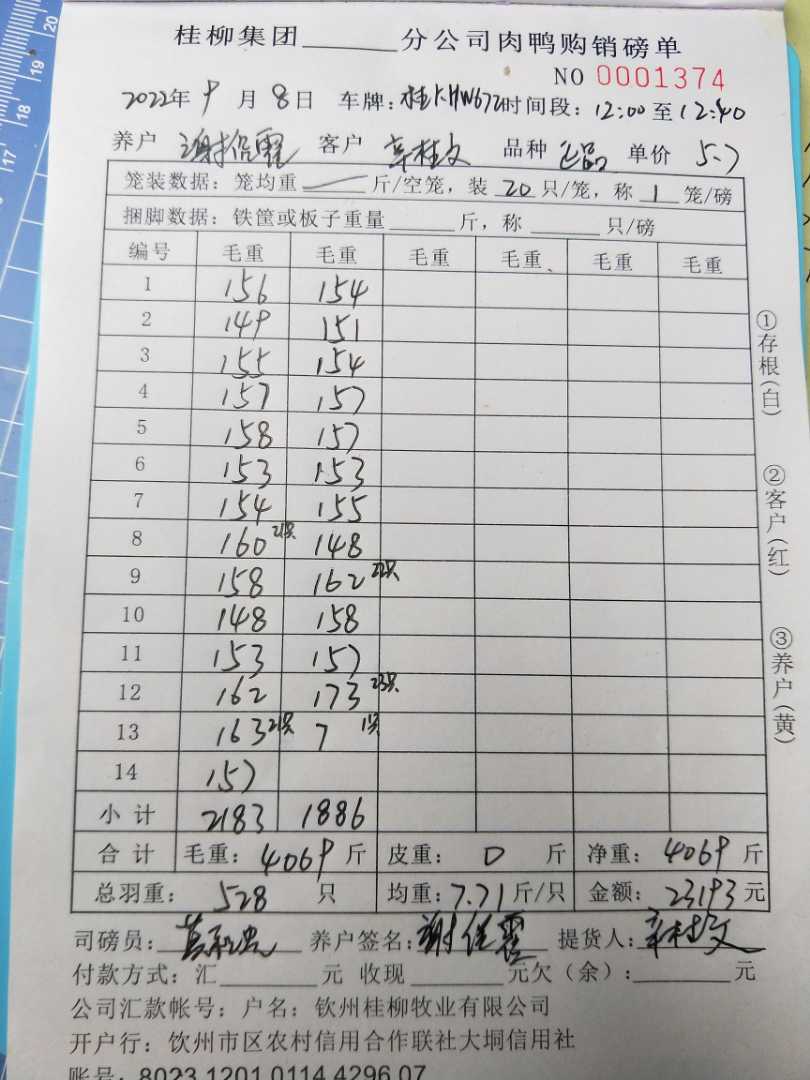 桂柳集团______分公司肉鸭购销磅单
NO 0001374
2022年 9 月 8日 车牌：桂KHW672时间段：12:00 至 12:40
养户 谢信霖 客户 辛桂文 品种 正品 单价 5.7
笼装数据：笼均重 — 斤/空笼，装 20 只/笼，称 1 笼/磅
捆脚数据：铁筐或板子重量______斤，称______只/磅
编号 毛重 毛重 毛重 毛重、 毛重 毛重
1 156 154
2 149 151
3 155 154
4 157 157
5 158 157
6 153 153
7 154 155
8 160 21只 148
9 158 162 22只
10 148 158
11 153 157
12 162 173 23只
13 163 21只 7 1只
14 157
小计 2183 1886
合计 毛重：4069 斤 皮重：0 斤 净重：4069 斤
总羽重：528 只 均重：7.71 斤/只 金额：23193 元
司磅员： 养户签名：谢信霖 提货人：辛桂文
付款方式：汇______元 收现______元欠（余）：______元
公司汇款帐号：户名：钦州桂柳牧业有限公司
开户行：饮州市区农村信用合作联社大垌信用社
账号：8023 1201 0114 4296 07
①存根(白)
②客户(红)
③养户(黄)
17 18 19 20